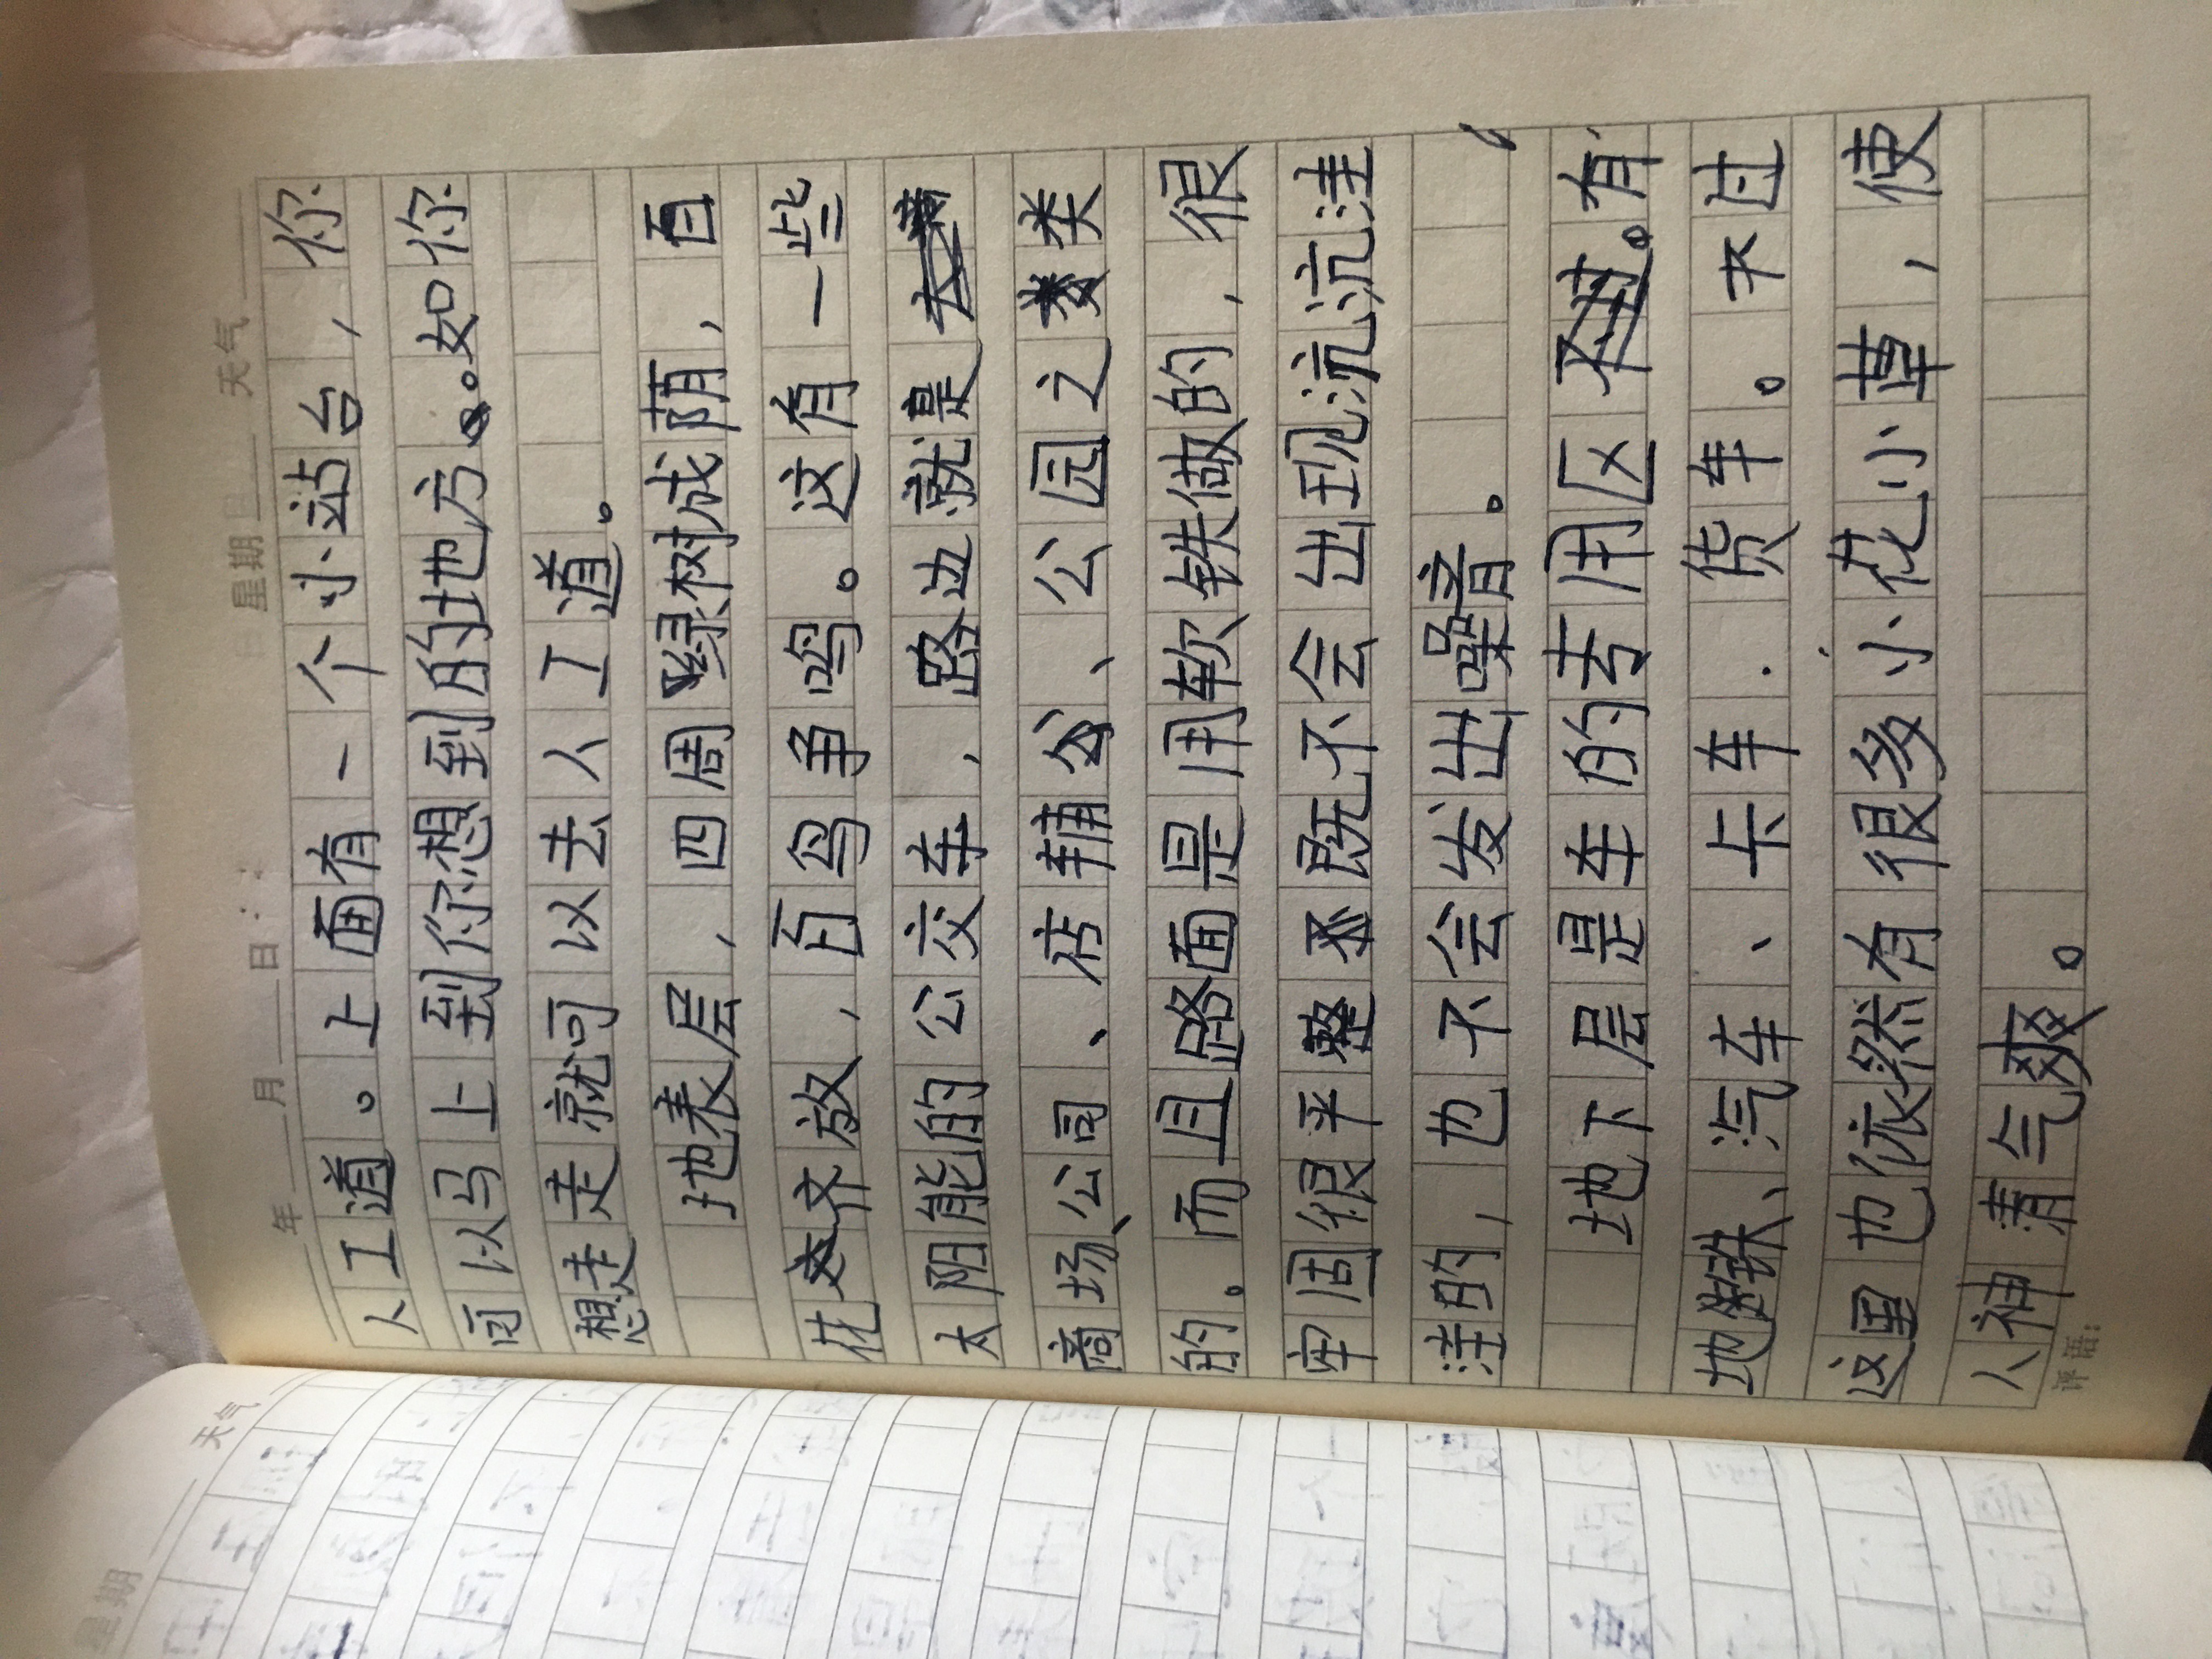 年 月 日 星期 天气
人工道。上面有一个小站台，你
可以马上到你想到的地方。如你
想走走就可以去人工道。
地表层，四周绿树成荫，百
花齐放，百鸟争鸣。这有一些
太阳能的公交车，路边就是
商场、公司、店铺、公园之类
的。而且路面是用软铁做的，很
牢固很平整既不会出现沆沆洼
洼的，也不会发出噪音。
地下层是车的专用区。有
地铁、汽车、卡车、货车。不过
这里也依然有很多小花小草，使
人神清气爽。
评语：
星期 天气